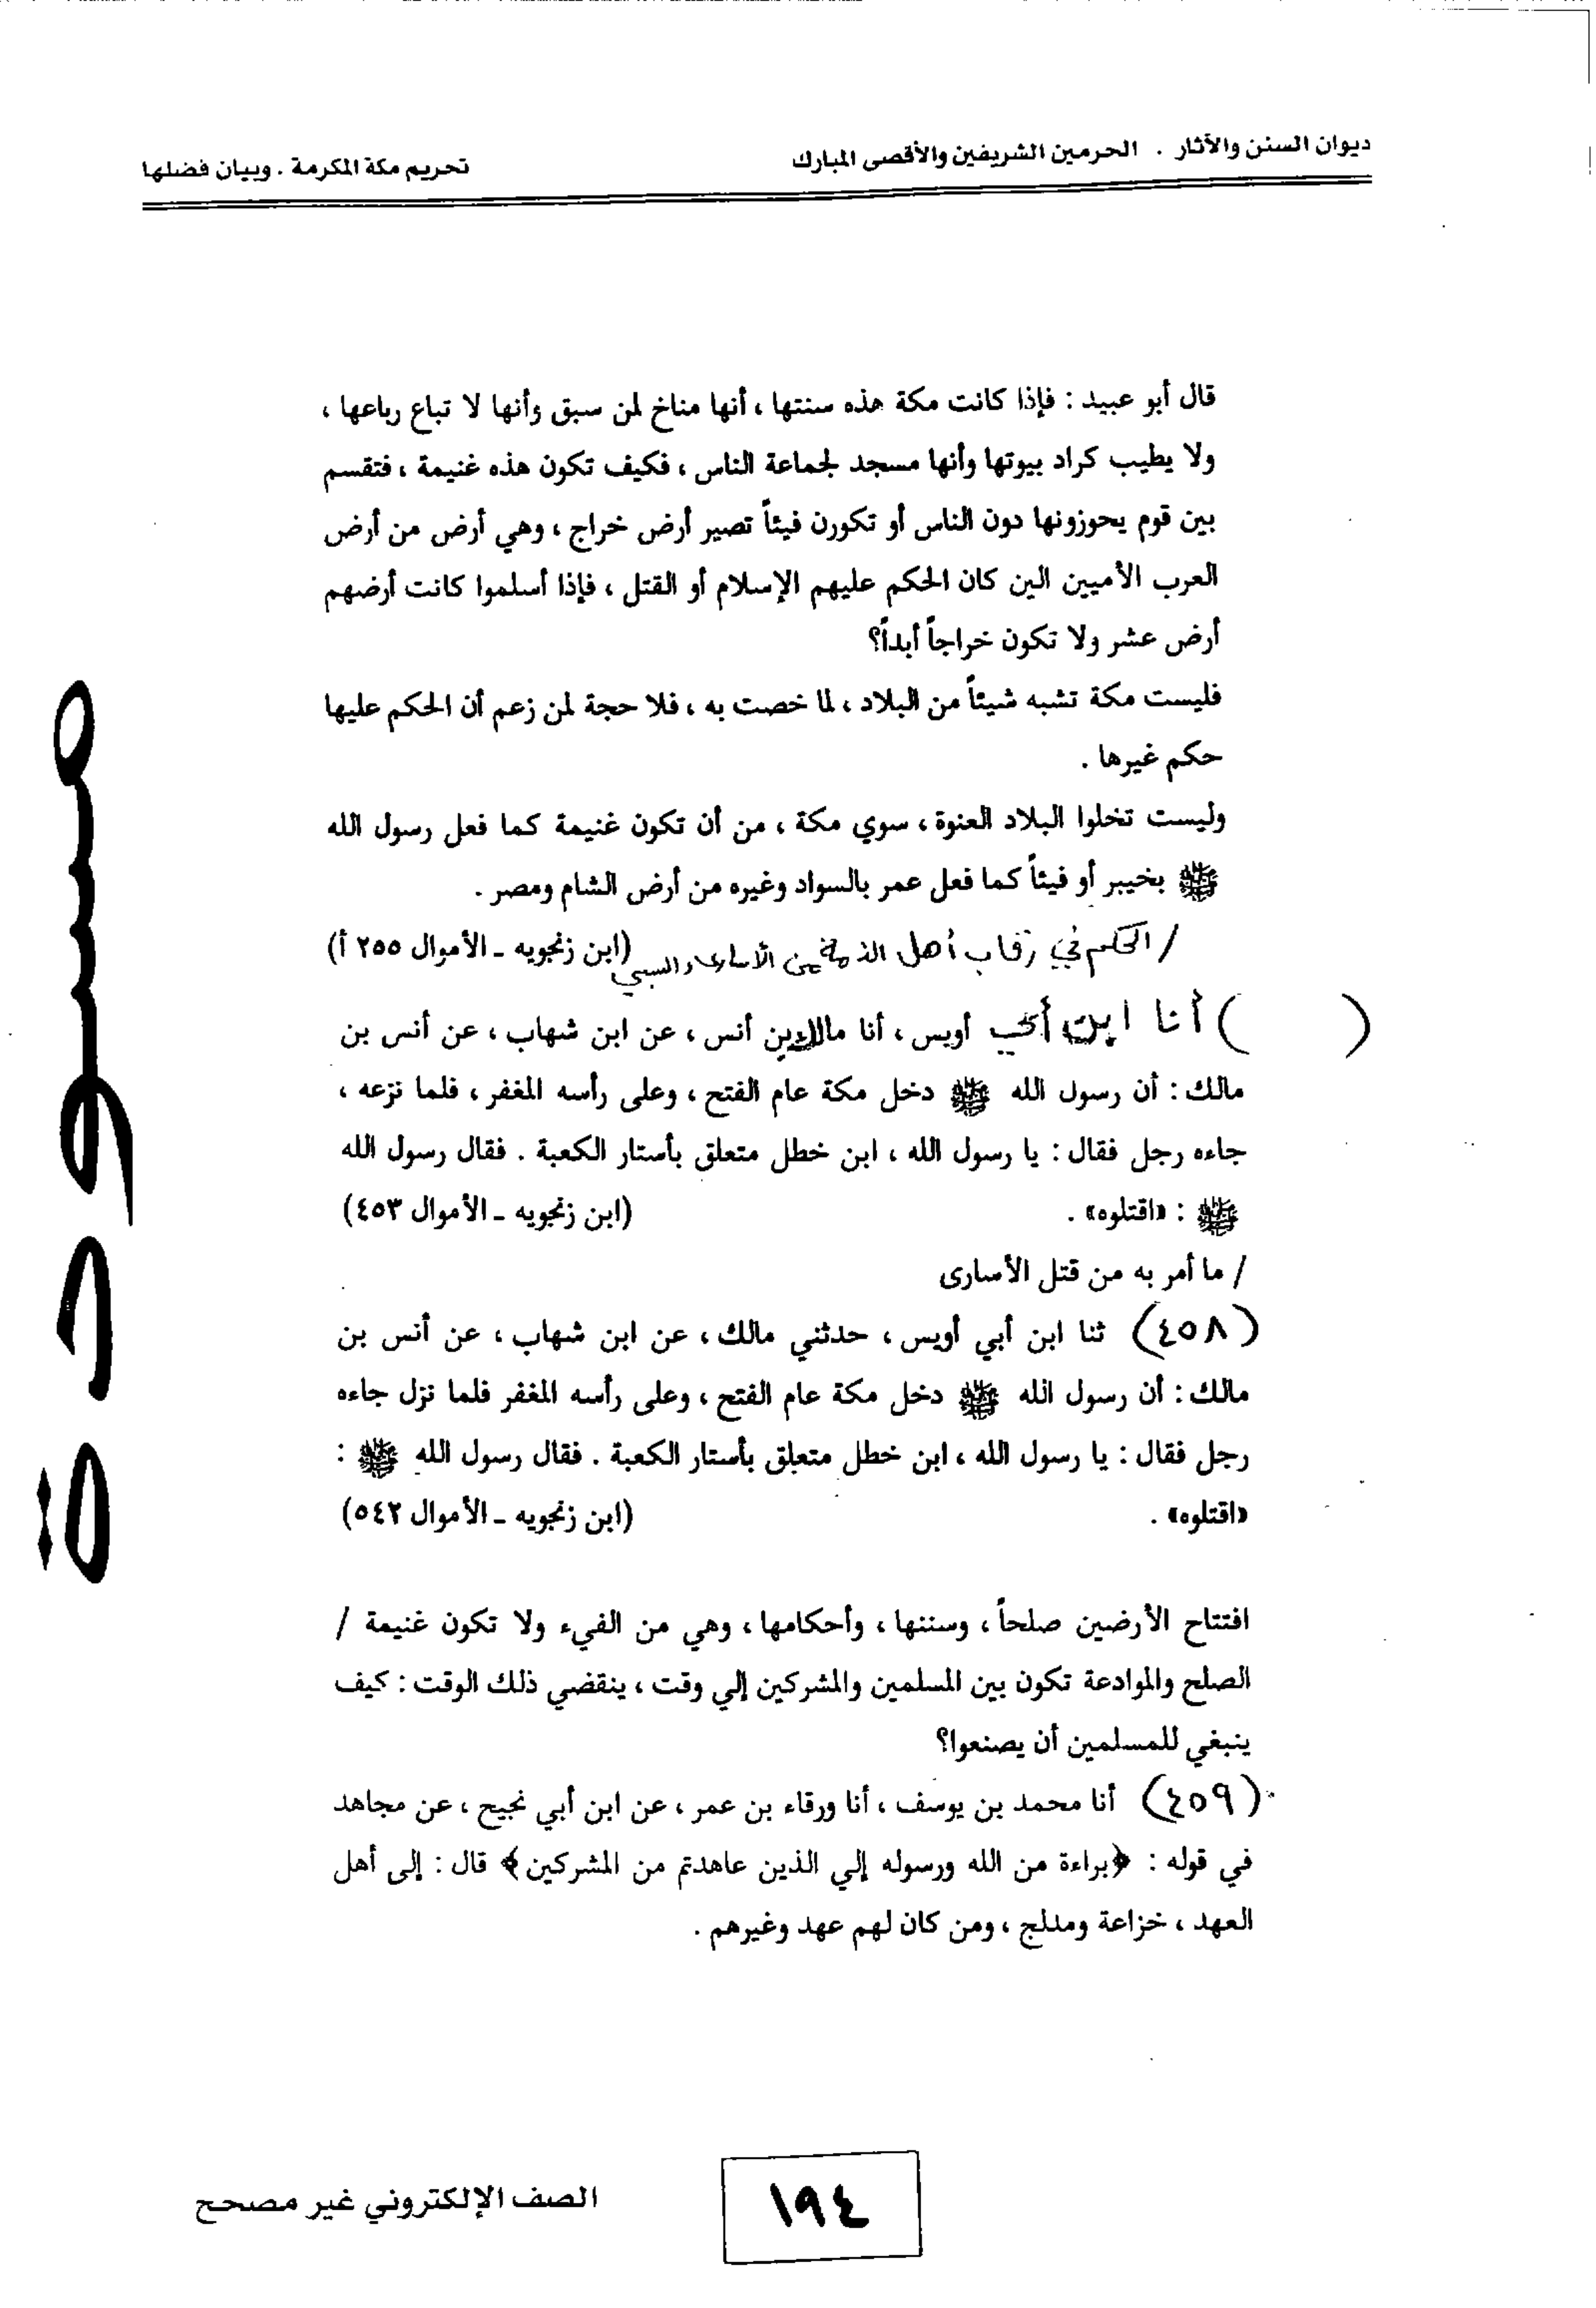 ديوان السنن والآثار . الحرمين الشريفين والأقصى المبارك
تحريم مكة المكرمة . وبيان فضلها
قال أبو عبيد : فإذا كانت مكة هذه سنتها ، أنها مناخ لمن سبق وأنها لا تباع رباعها ،
ولا يطيب كراد بيوتها وأنها مسجد لجماعة الناس ، فكيف تكون هذه غنيمة ، فتقسم
بين قوم يحوزونها دون الناس أو تكورن فيئاً تصير أرض خراج ، وهي أرض من أرض
العرب الأميين الين كان الحكم عليهم الإسلام أو القتل ، فإذا أسلموا كانت أرضهم
أرض عشر ولا تكون خراجاً أبداً؟
فليست مكة تشبه شيئاً من البلاد ، لما خصت به ، فلا حجة لمن زعم أن الحكم عليها
حكم غيرها .
وليست تخلوا البلاد العنوة ، سوي مكة ، من أن تكون غنيمة كما فعل رسول الله
ﷺ بخيبر أو فيئاً كما فعل عمر بالسواد وغيره من أرض الشام ومصر .
/ الحكم في رقاب أهل الذمة من الأسارى والسبي (ابن زنجويه ـ الأموال ٢٥٥ أ)
( ) أنا ابن أبي أويس ، أنا مالك بن أنس ، عن ابن شهاب ، عن أنس بن
مالك : أن رسول الله ﷺ دخل مكة عام الفتح ، وعلى رأسه المغفر ، فلما نزعه ،
جاءه رجل فقال : يا رسول الله ، ابن خطل متعلق بأستار الكعبة . فقال رسول الله
ﷺ : «اقتلوه» . (ابن زنجويه ـ الأموال ٤٥٣)
/ ما أمر به من قتل الأسارى
(٤٥٨) ثنا ابن أبي أويس ، حدثني مالك ، عن ابن شهاب ، عن أنس بن
مالك : أن رسول الله ﷺ دخل مكة عام الفتح ، وعلى رأسه المغفر فلما نزل جاءه
رجل فقال : يا رسول الله ، ابن خطل متعلق بأستار الكعبة . فقال رسول الله ﷺ :
«اقتلوه» . (ابن زنجويه ـ الأموال ٥٤٢)
افتتاح الأرضين صلحاً ، وسننها ، وأحكامها ، وهي من الفيء ولا تكون غنيمة /
الصلح والموادعة تكون بين المسلمين والمشركين إلي وقت ، ينقضي ذلك الوقت : كيف
ينبغي للمسلمين أن يصنعوا؟
(٤٥٩) أنا محمد بن يوسف ، أنا ورقاء بن عمر ، عن ابن أبي نجيح ، عن مجاهد
في قوله : ﴿براءة من الله ورسوله إلي الذين عاهدتم من المشركين﴾ قال : إلى أهل
العهد ، خزاعة ومدلج ، ومن كان لهم عهد وغيرهم .
١٩٤
الصف الإلكتروني غير مصحح
مسودة